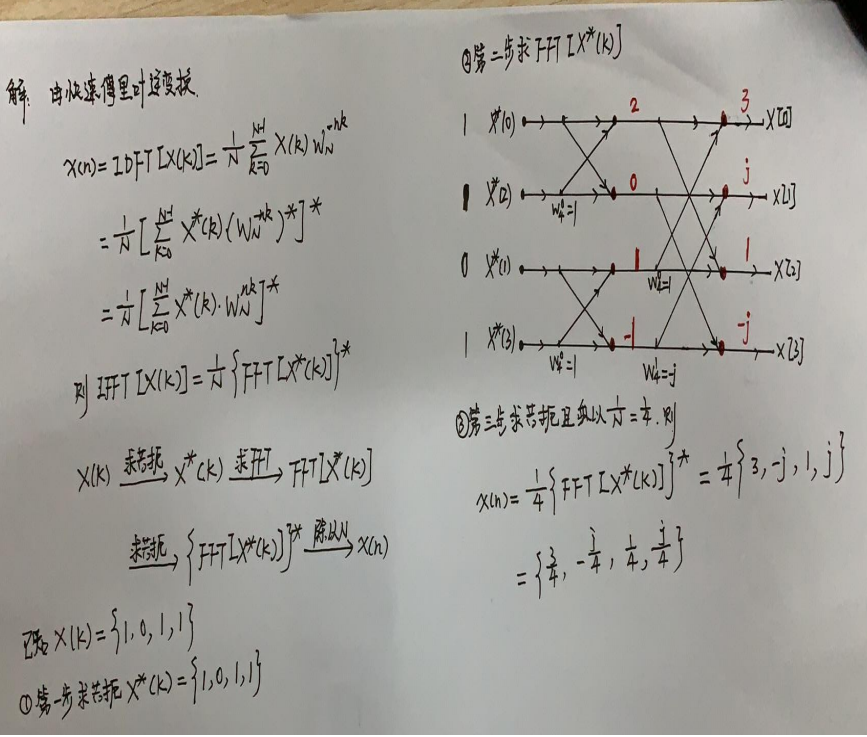 解: 由快速傅里叶逆变换.
x(n)=IDFT[X(k)]=\frac{1}{N}\sum_{k=0}^{N-1}X(k)W_N^{-nk}
=\frac{1}{N}[\sum_{k=0}^{N-1}X^*(k)(W_N^{-nk})^*]^*
=\frac{1}{N}[\sum_{k=0}^{N-1}X^*(k)·W_N^{nk}]^*
则 IFFT[X(k)]=\frac{1}{N}{FFT[X^*(k)]}^*
X(k) \xrightarrow{求共轭} X^*(k) \xrightarrow{求FFT} FFT[X^*(k)]
\xrightarrow{求共轭} {FFT[X^*(k)]}^* \xrightarrow{除以N} x(n)
已知 X(k)={1,0,1,1}
①第一步求共轭 X^*(k)={1,0,1,1}
②第二步求 FFT[X^*(k)]
1 X^*(0) 2 3 X[0]
1 X^*(2) 0 j X[1]
W_4^0=1
0 X^*(1) 1 1 X[2]
W_4^0=1
1 X^*(3) -1 -j X[3]
W_4^0=1 W_4^1=-j
③第三步求共轭且乘以\frac{1}{N}=\frac{1}{4}.则
x(n)=\frac{1}{4}{FFT[X^*(k)]}^*=\frac{1}{4}{3,-j,1,j}
={\frac{3}{4},-\frac{j}{4},\frac{1}{4},\frac{j}{4}}